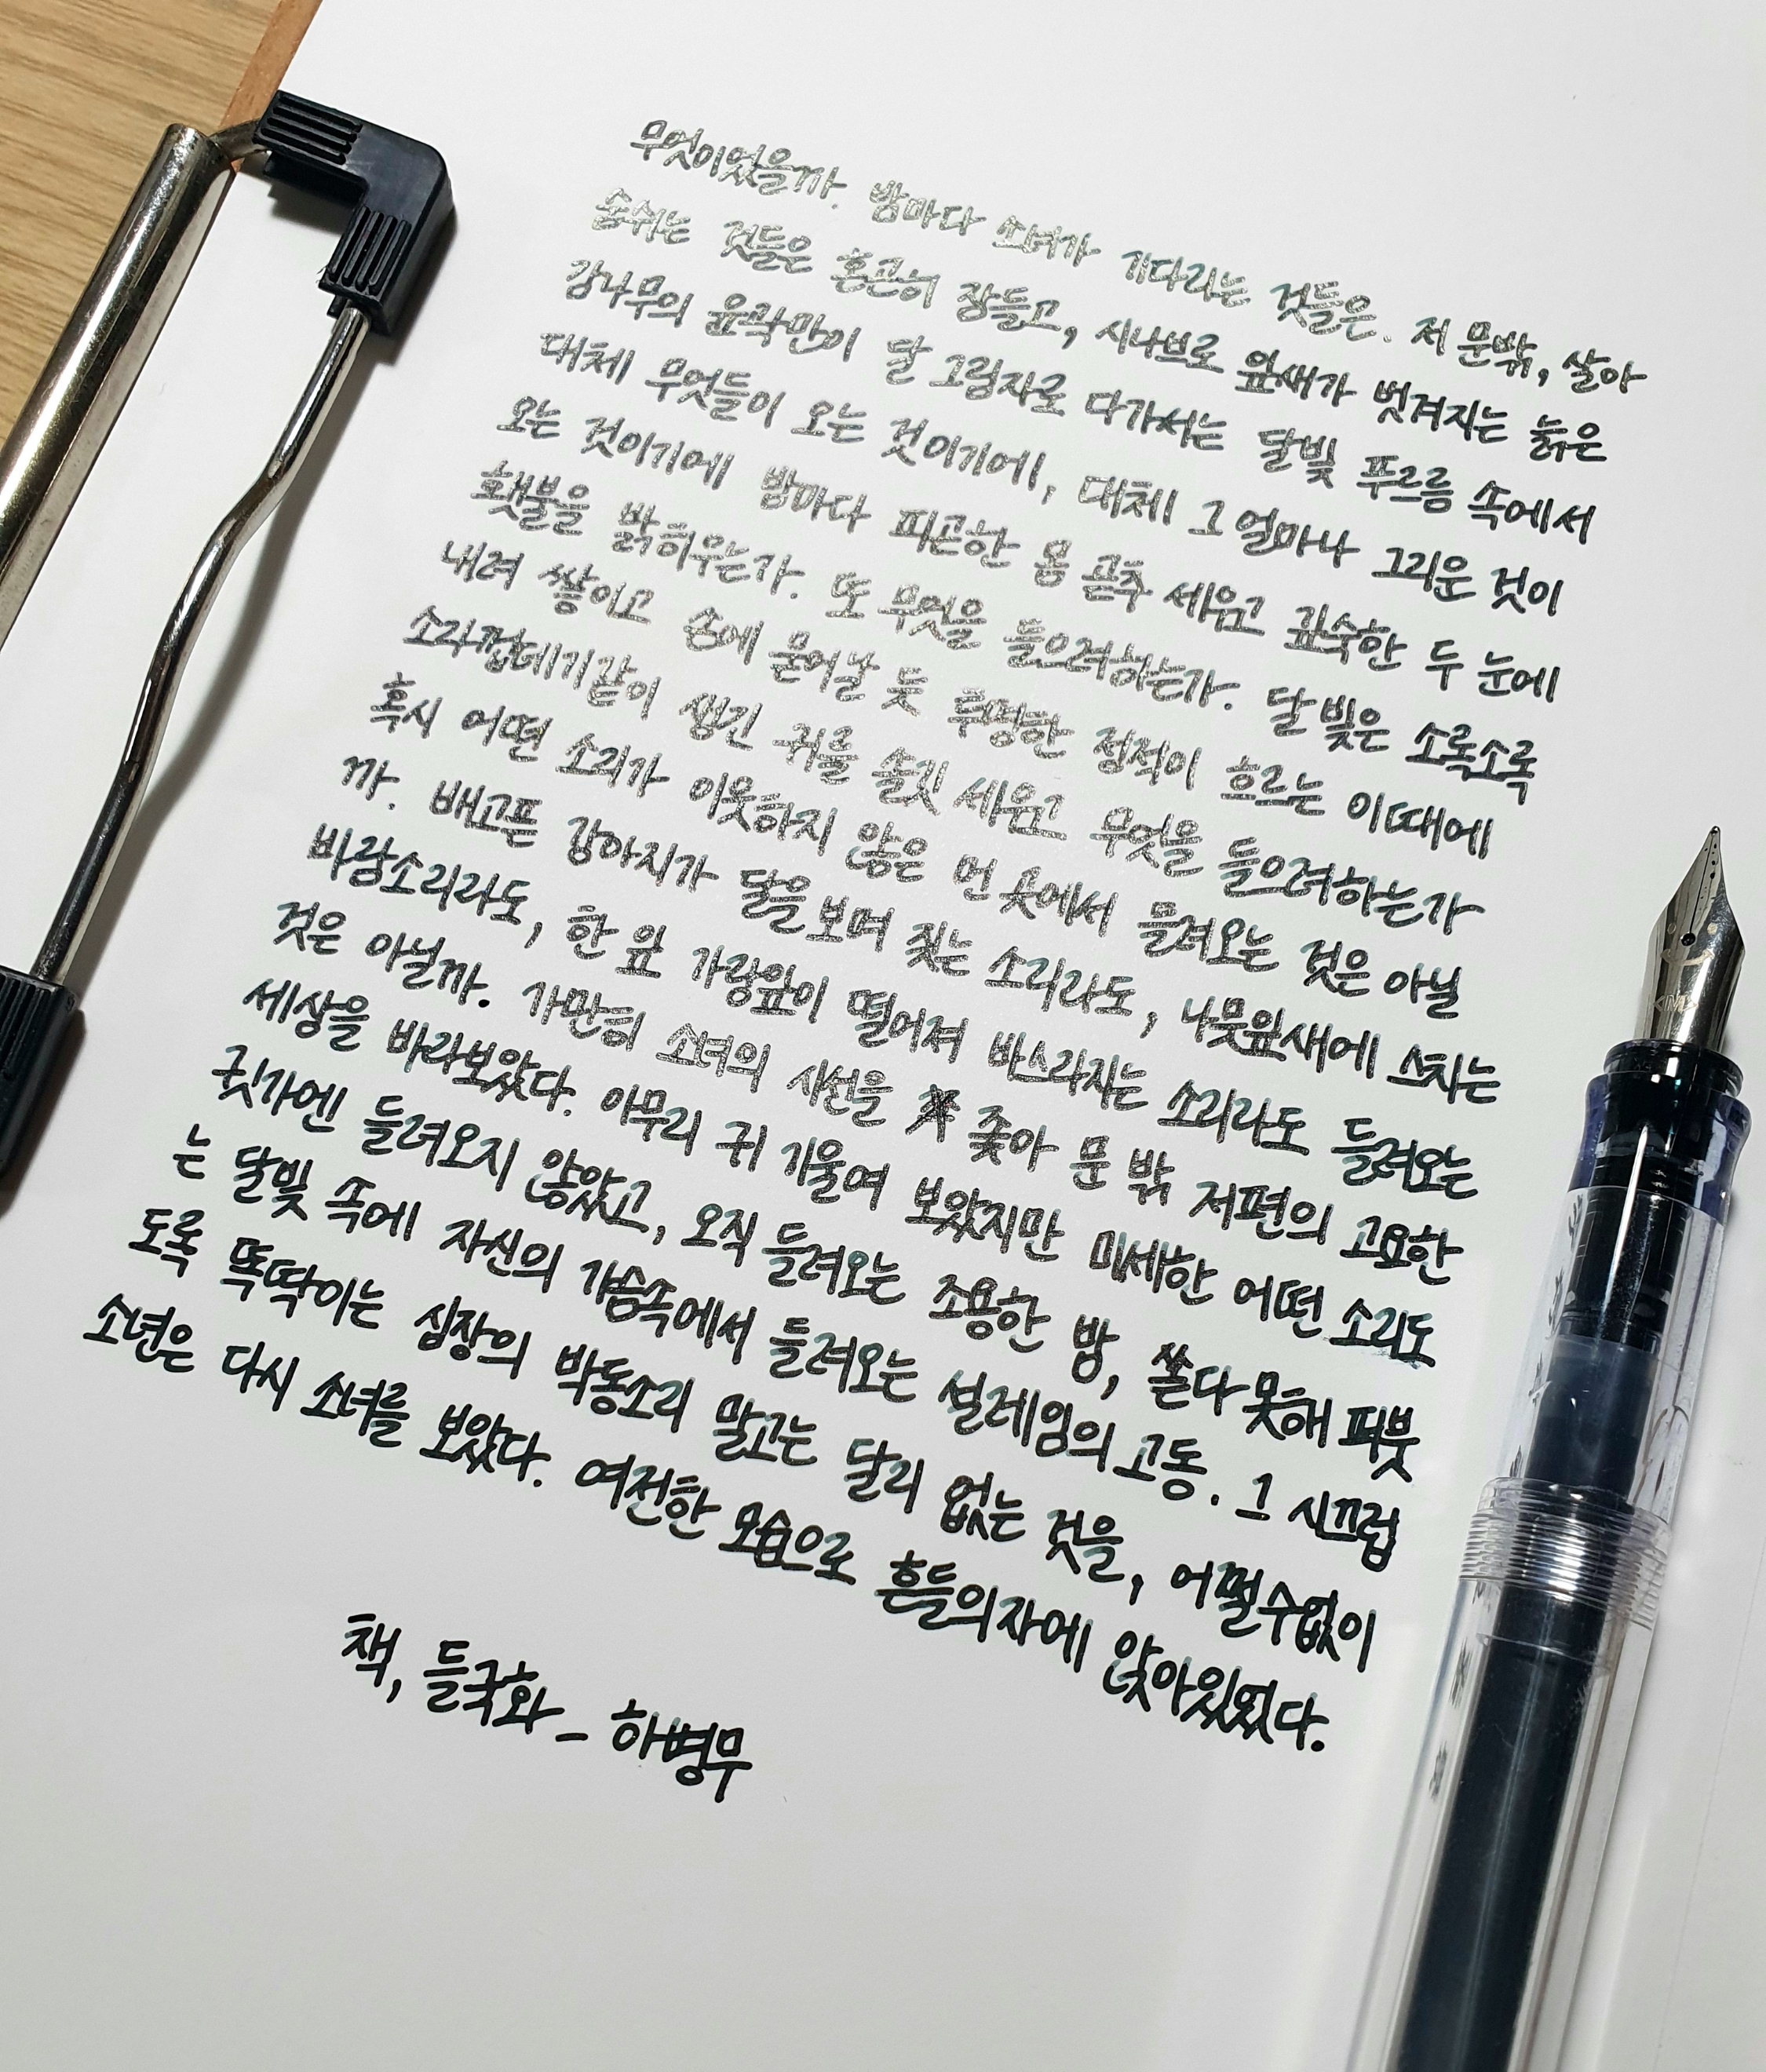 무엇이었을까. 밤마다 소녀가 기다리는 것들은. 저 문밖, 살아
숨쉬는 것들은 혼곤히 잠들고, 시나브로 잎새가 벗겨지는 늙은
감나무의 윤곽만이 달 그림자로 다가서는 달빛 푸르름 속에서
대체 무엇들이 오는 것이기에, 대체 그 얼마나 그리운 것이
오는 것이기에 밤마다 피곤한 몸 곧추 세우고 깊숙한 두 눈에
횃불을 밝히우는가. 또 무엇을 들으려하는가. 달빛은 소록소록
내려 쌓이고 손에 묻어날 듯 투명한 정적이 흐르는 이때에
소라껍데기같이 생긴 귀를 쏠깃 세우고 무엇을 들으려하는가
혹시 어떤 소리가 이웃하지 않은 먼 곳에서 들려오는 것은 아닐
까. 배고픈 강아지가 달을보며 짖는 소리라도, 나뭇잎새에 스치는
바람소리라도, 한 잎 가랑잎이 떨어져 바스라지는 소리라도 들려오는
것은 아닐까. 가만히 소녀의 시선을 좇아 문 밖 저편의 고요한
세상을 바라보았다. 아무리 귀 기울여 보았지만 미세한 어떤 소리도
귓가엔 들려오지 않았고, 오직 들려오는 조용한 밤, 쏟다못해 퍼붓
는 달빛 속에 자신의 가슴속에서 들려오는 설레임의 고동. 그 시끄럽
도록 똑딱이는 심장의 박동소리 말고는 달리 없는 것을, 어쩔수없이
소년은 다시 소녀를 보았다. 여전한 모습으로 흔들의자에 앉아있었다.
책, 들국화 - 하병무
KM